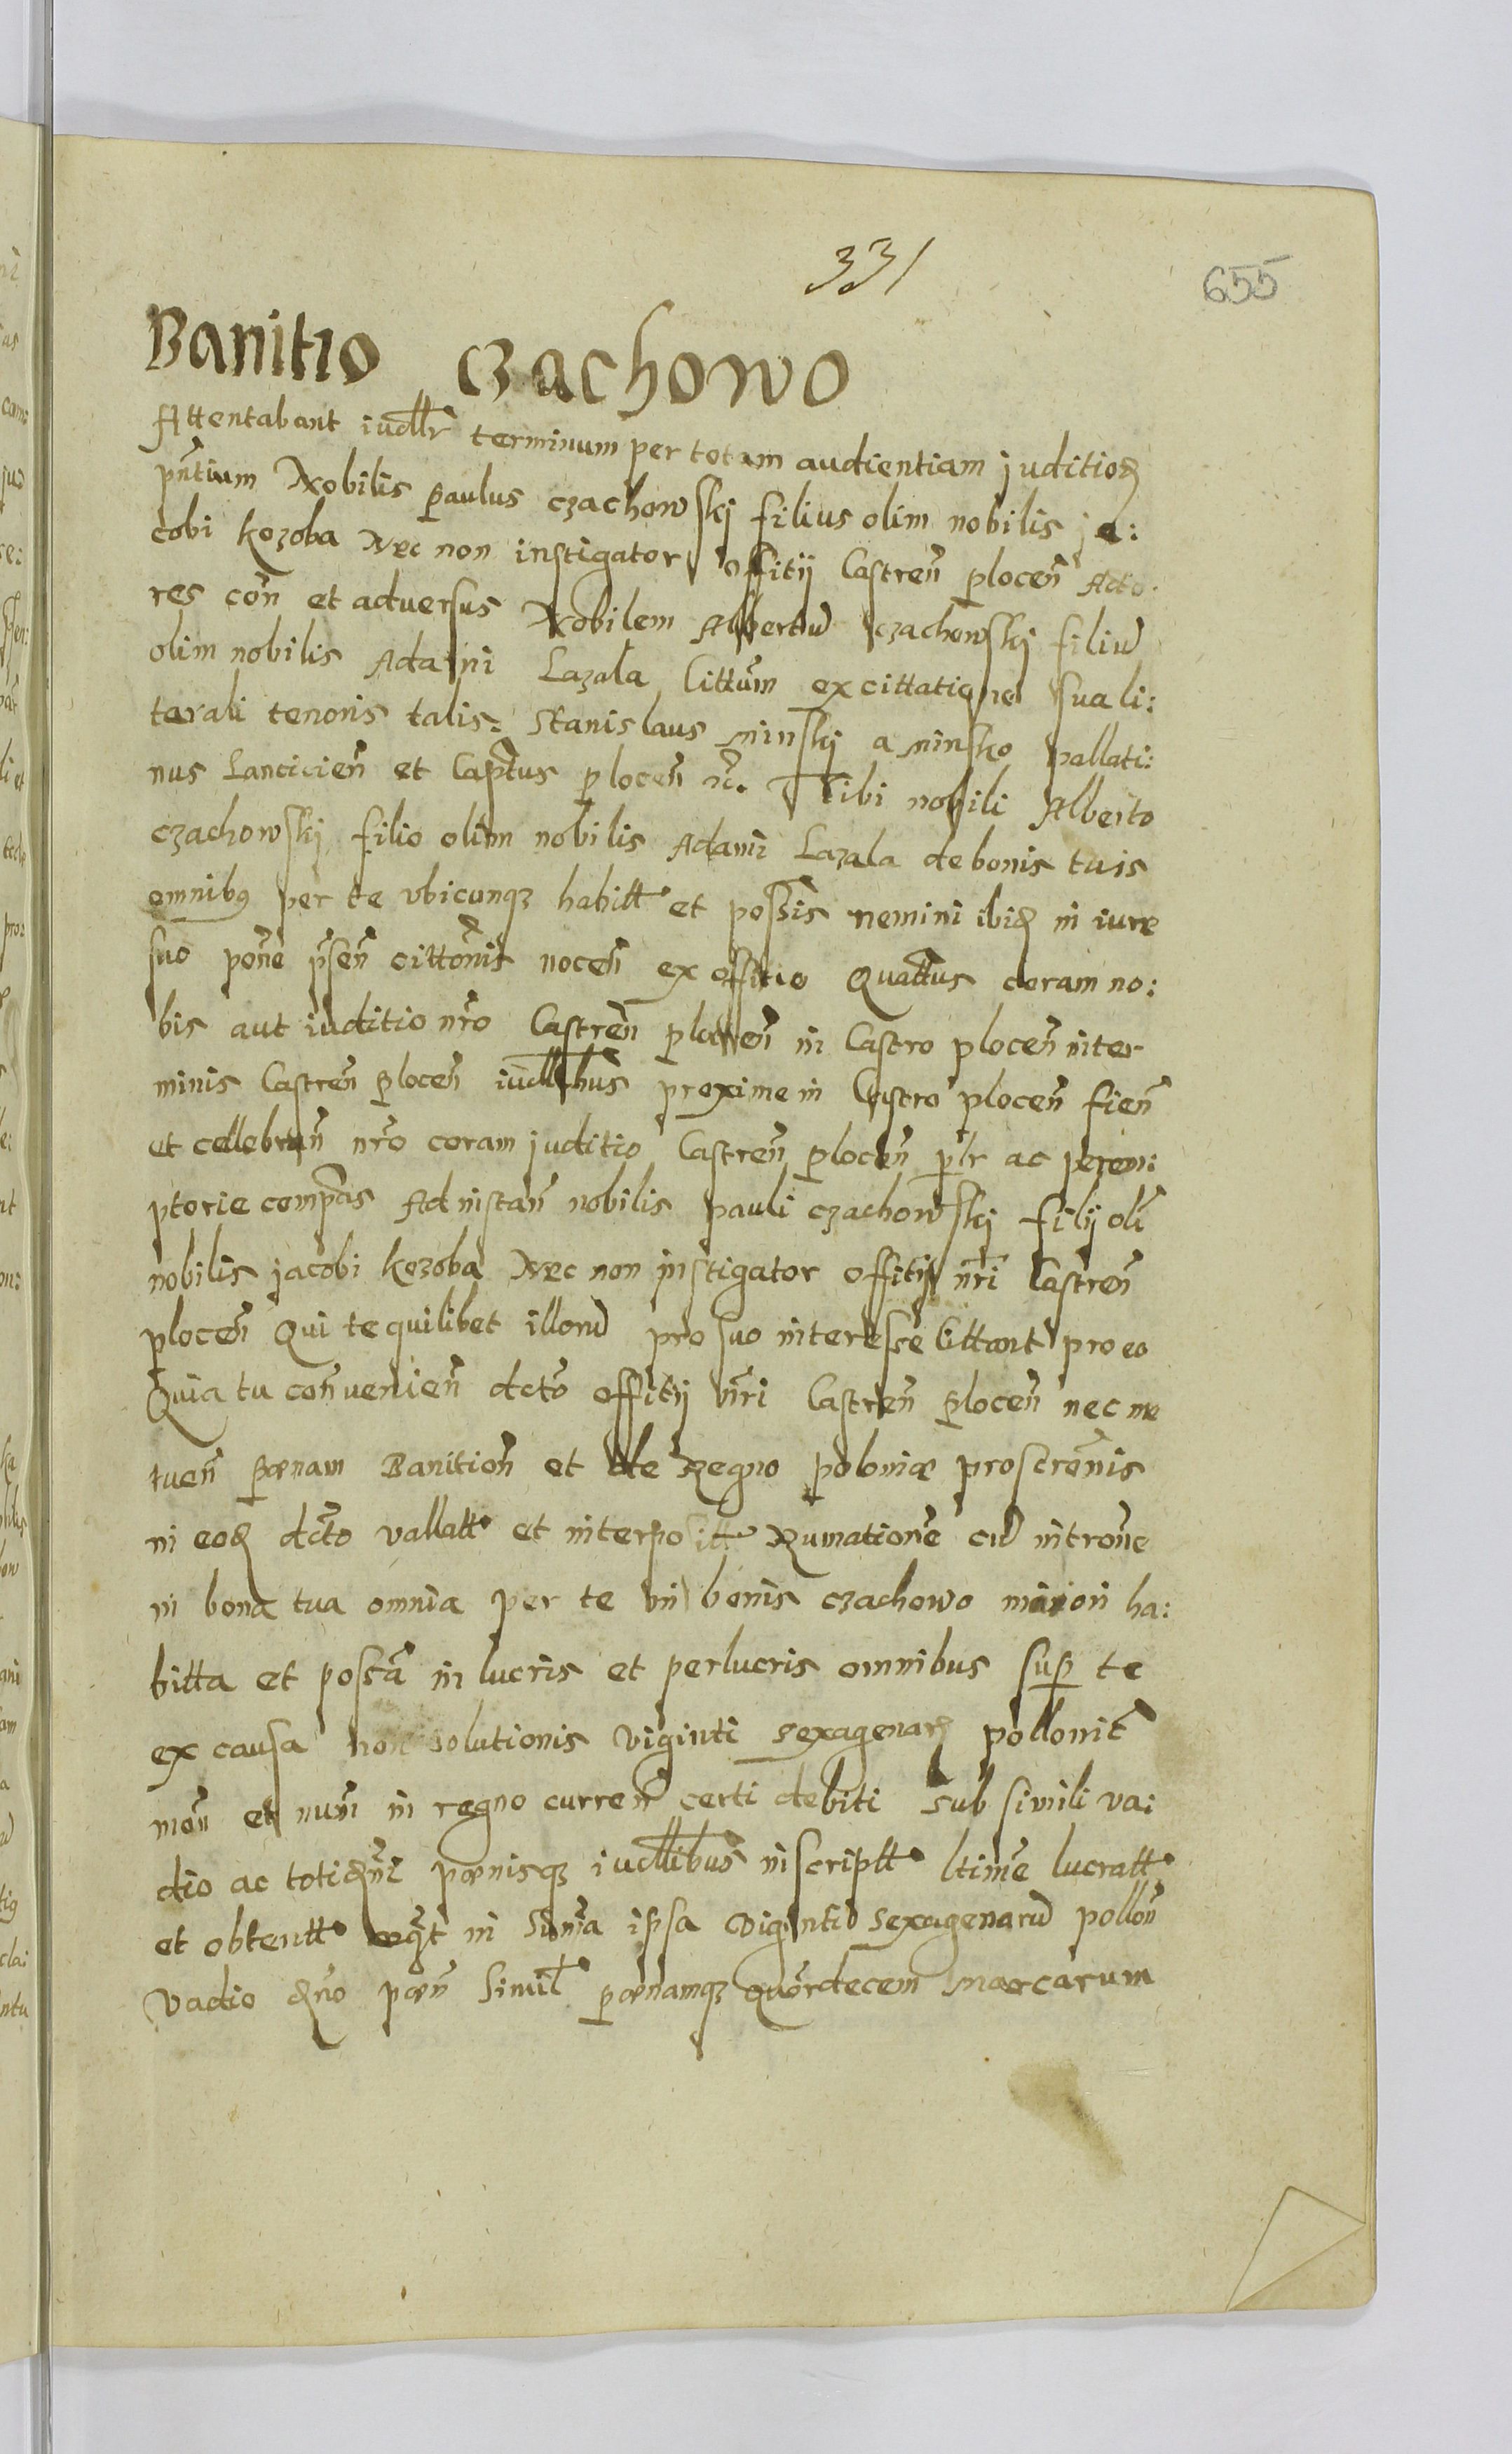 331
655
Banitio Czachowo
Attentabant iudllr terminum per totam audientiam juditior
pntium Nobilis paulus czachowskj filius olim nobilis ja:
cobi kozoba Nec non instigator offitij Castren plocen Acto
res con et adversus Nobilem Albertu czachowskj filiu
olim nobilis Adami Lazala Cittum ex cittatione sua li:
terali tenoris talis. Stanislaus minskj a minsko pallati:
nus Lancicien et Captus plocen etc. Tibi nobili Alberto
czachowskj filio olim nobilis Adami Lazala de bonis tuis
omnibq per te vbicunqz habitt et possis nemini ibid in iure
suo pone psen cittonis nocen ex offitio Quattus coram no:
bis aut iuditio nro Castren plocen in Castro plocen inter
minis Castren plocen iudllibus proxime in Castro plocen fien
et cellebran nro coram juditio Castren plocen plr ac perem:
ptorie compas Ad instan nobilis pauli czachowskj filij oli
nobilis jacobi kozoba Nec non instigator offitij nri Castren
plocen Qui te quilibet illoru pro suo interesse Cittant pro eo
Quia tu convenien dcto offitij nri Castren plocen nec me
tuen pænam Banition et de Regno poloniæ proscronis
in eod dcto vallatt et interpositt Rumatione cu introne
in bona tua omnia per te in bonis czachowo minori ha:
bitta et possa in lucris et perlucris omnibus sup te
ex causa non solutionis viginti sexagenar pollonic
mon et num in regno curren certi debiti sub simili va:
dio ac totidni pænisqz iudllibus inscriptt ltime lucratt
et obtentt in suma ipsa viginti sexagenaru pollon
vadio dno pæn simil pænamqz quordecem marcarum